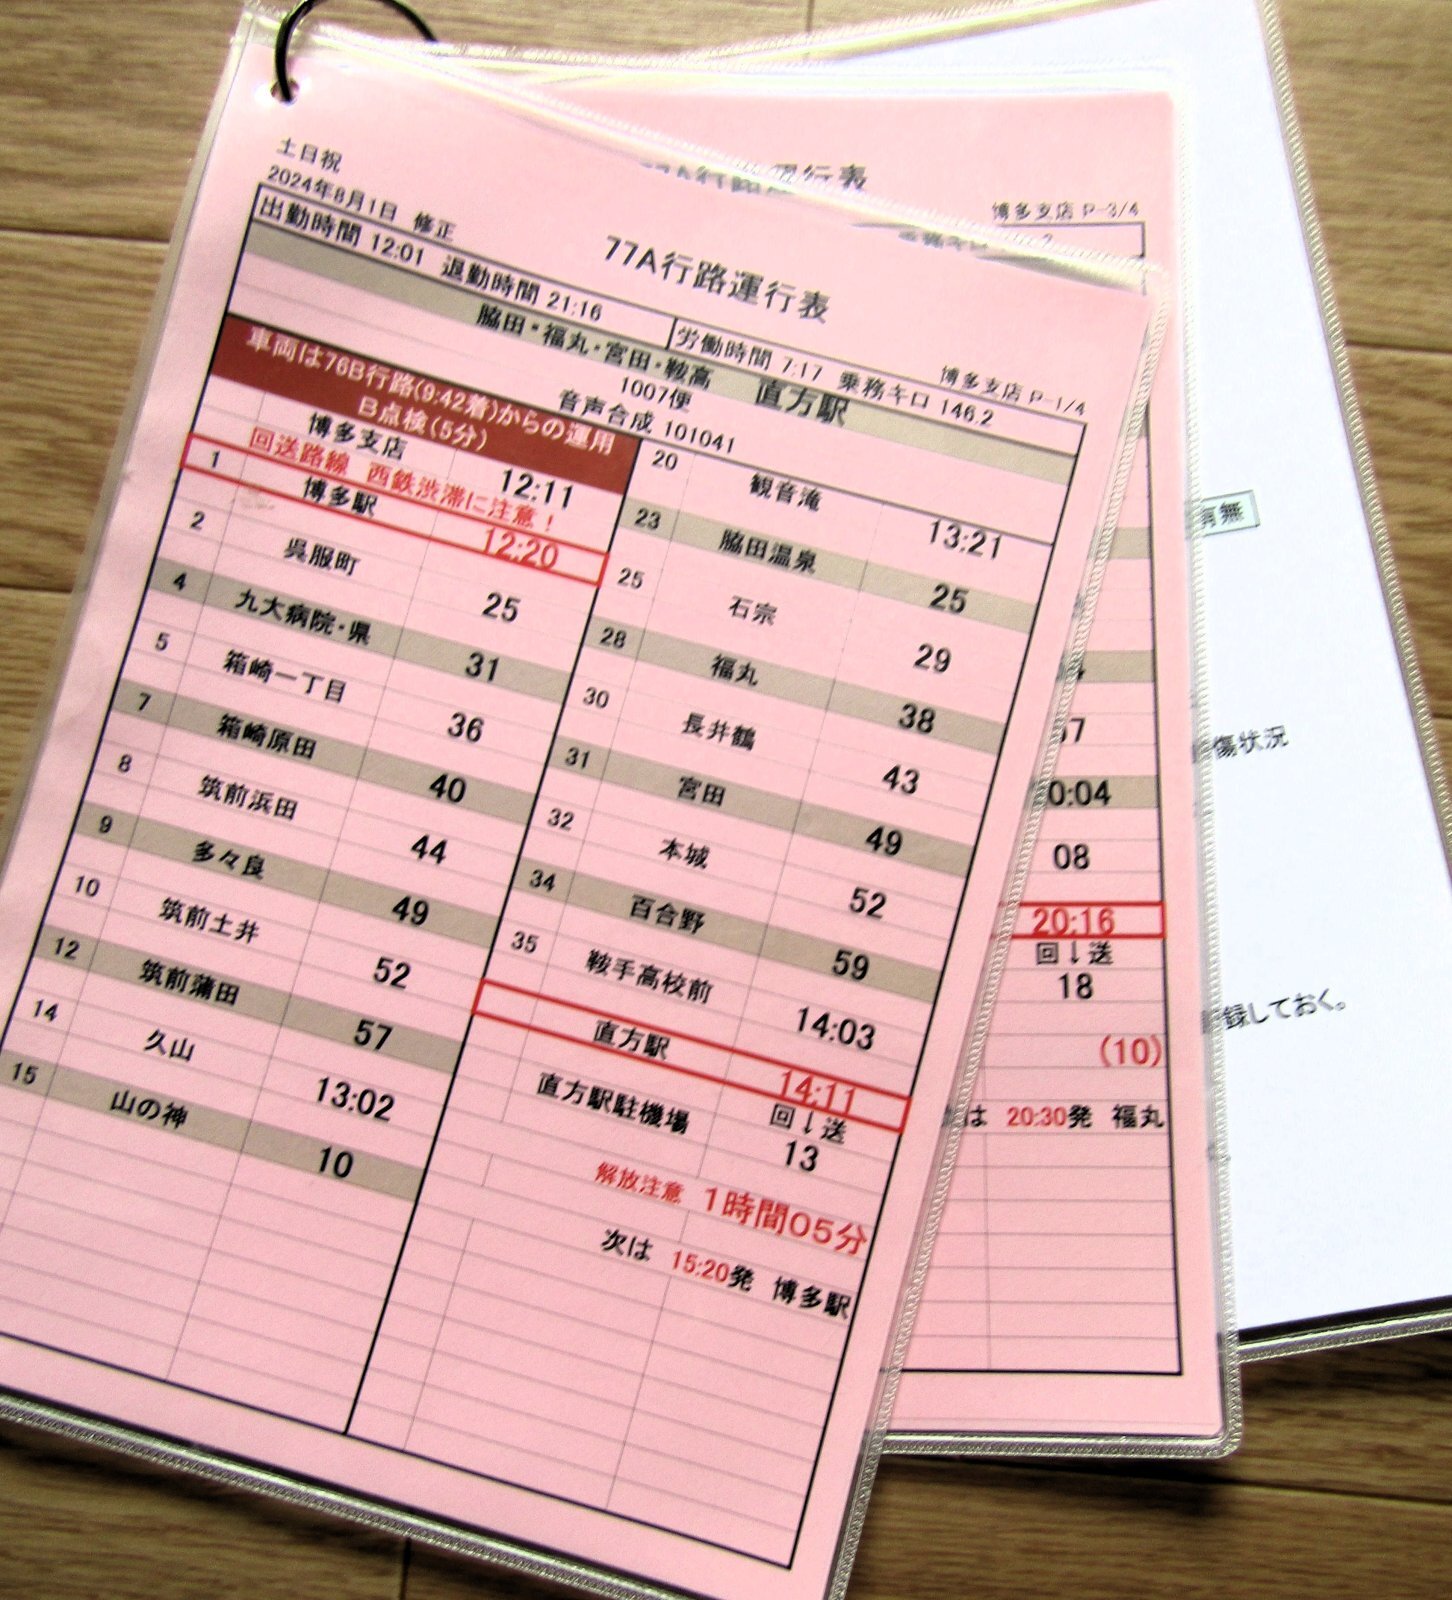 土日祝
2024年8月1日 修正
77A行路運行表
博多支店 P-1/4
出勤時間 12:01 退勤時間 21:16
労働時間 7:17 乗務キロ 146.2
脇田・福丸・宮田・鞍高 直方駅
1007便
音声合成 101041
車両は76B行路(9:42着)からの運用
B点検(5分)
博多支店 12:11
回送路線 西鉄渋滞に注意!
1 博多駅 12:20
2 呉服町 25
4 九大病院・県 31
5 箱崎一丁目 36
7 箱崎原田 40
8 筑前浜田 44
9 多々良 49
10 筑前土井 52
12 筑前蒲田 57
14 久山 13:02
15 山の神 10
20 観音滝 13:21
23 脇田温泉 25
25 石宗 29
28 福丸 38
30 長井鶴 43
31 宮田 49
32 本城 52
34 百合野 59
35 鞍手高校前 14:03
直方駅 14:11
回↓送
直方駅駐機場 13
解放注意 1時間05分
次は 15:20発 博多駅
運行表
博多支店 P-3/4
0:04
08
20:16
回↓送
18
(10)
は 20:30発 福丸
有無
傷状況
録しておく。